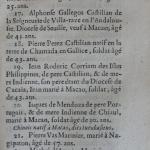 25. ans.
17. Alphonse Gallegos Castillan de
la Seigneurie de Villa-rase en l'Andalou-
sie, Diocese de Seville, veuf à Macao, âgé
de 45. ans.
18. Pierre Perez Castillan natif en la
terre de Chamada en Gallice, soldat âgé
de 43. ans.
19. Jean Roderic Corriam des Isles
Philippines, de pere Castillan, & de me-
re Indienne, son pere étant du Diocese de
Cacais, Iean marié à Macao, soldat, âgé
de 43. ans.
20. Iaques de Mendoza de pere Portu-
gais, & de mere Indienne de Chiaul,
marié à Macao, soldat, âgé de 30. ans.
Chinois natif à Macao, des
21. Pierre Vas Marinier, marié à Naga-
patan, âgé de 47. ans.